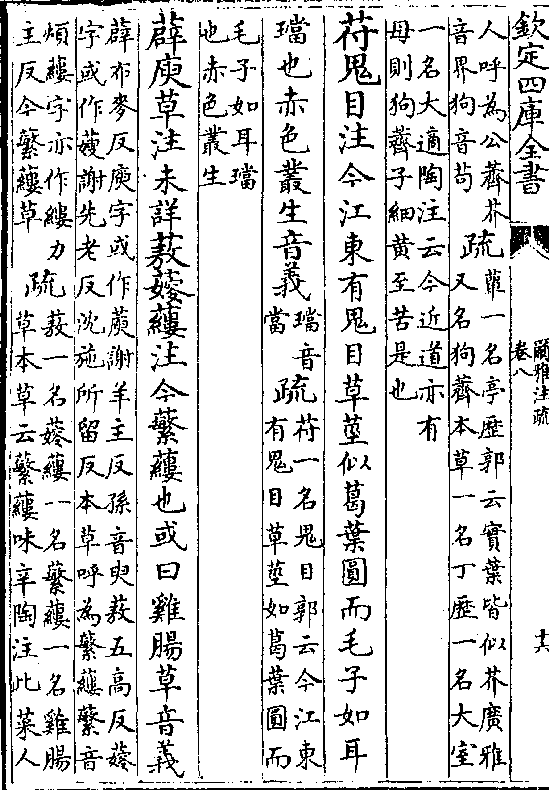 欽定四庫全書
爾雅注疏
卷八
十六
人呼為公薺芥
音界狗音茍
疏
蕇一名亭歷郭云實葉皆似芥廣雅
又名狗薺本草一名丁歷一名大室
一名大適陶注云今近道亦有
母則狗薺子細黃至苦是也
苻鬼目注今江東有鬼目草莖似葛葉圓而毛子如耳
璫也赤色叢生音義
璫音
當
疏
苻一名鬼目郭云今江東
有鬼目草莖如葛葉圓而
毛子如耳璫
也赤色叢生
薜庾草注未詳蔜䕅蔞注今蘩蔞也或曰雞腸草音義
薜布麥反庾字或作䔱謝羊主反孫音臾蔜五高反䕅
字或作䕅謝先老反沈施所留反本草呼為蘩蔞蘩音
煩蔞字亦作縷力
主反今蘩蔞草
疏
蔜一名䕅蔞一名蘩蔞一名雞腸
草本草云蘩蔞味辛陶注此菜人